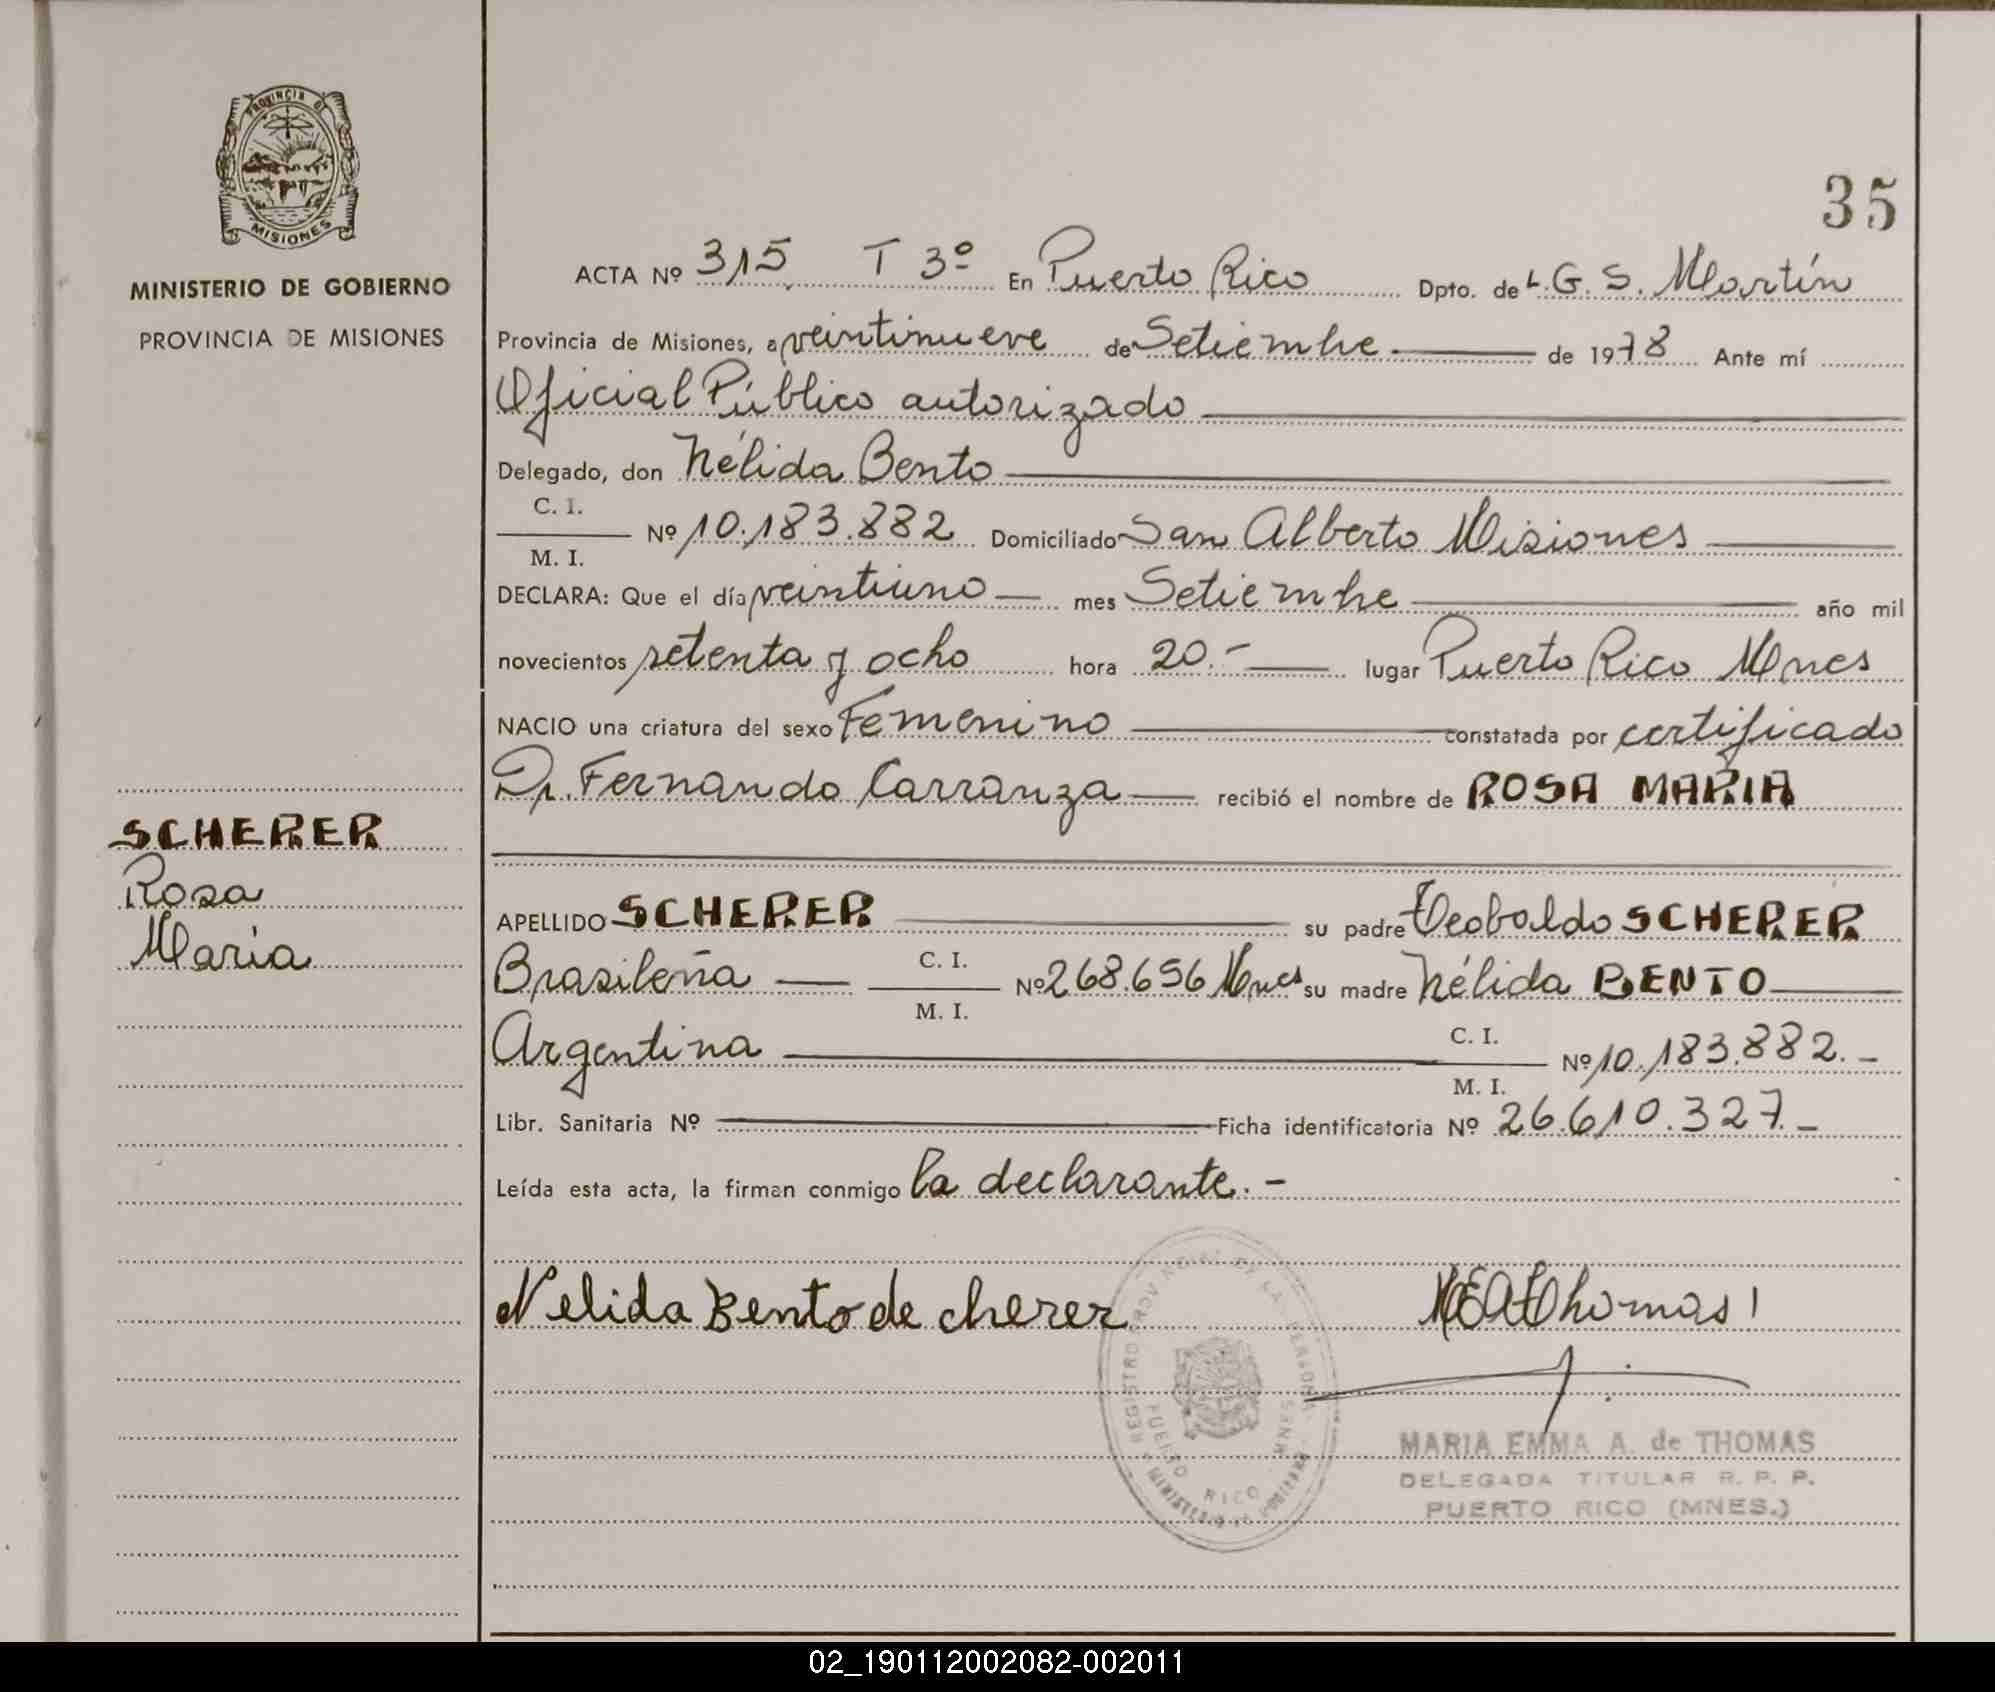 PROVINCIA DE
MISIONES
MINISTERIO DE GOBIERNO
PROVINCIA DE MISIONES
SCHERER
Rosa
Maria
35
ACTA Nº 315 T 3º En Puerto Rico Dpto. de L.G.S. Martín
Provincia de Misiones, a veintinueve de Setiembre de 1978 Ante mí
Oficial Público autorizado
Delegado, don Nélida Bento
C. I.
M. I.
Nº 10.183.882 Domiciliado San Alberto Misiones
DECLARA: Que el día veintiuno mes Setiembre año mil
novecientos setenta y ocho hora 20.- lugar Puerto Rico Mnes
NACIO una criatura del sexo Femenino constatada por certificado
Dr. Fernando Carranza recibió el nombre de ROSA MARIA
APELLIDO SCHERER su padre Teobaldo SCHERER
Brasileña C. I. M. I. Nº 268.656 Mnes su madre Nélida BENTO
Argentina C. I. M. I. Nº 10.183.882.-
Libr. Sanitaria Nº Ficha identificatoria Nº 26.610.327.-
Leída esta acta, la firman conmigo la declarante.-
Nelida Bento de cherer MEAThomas
REGISTRO PROVINCIAL DE LAS PERSONAS
PUERTO RICO MNES
MINISTERIO DE GOBIERNO
MARIA EMMA A. de THOMAS
DELEGADA TITULAR R. P. P.
PUERTO RICO (MNES.)
02_190112002082-002011